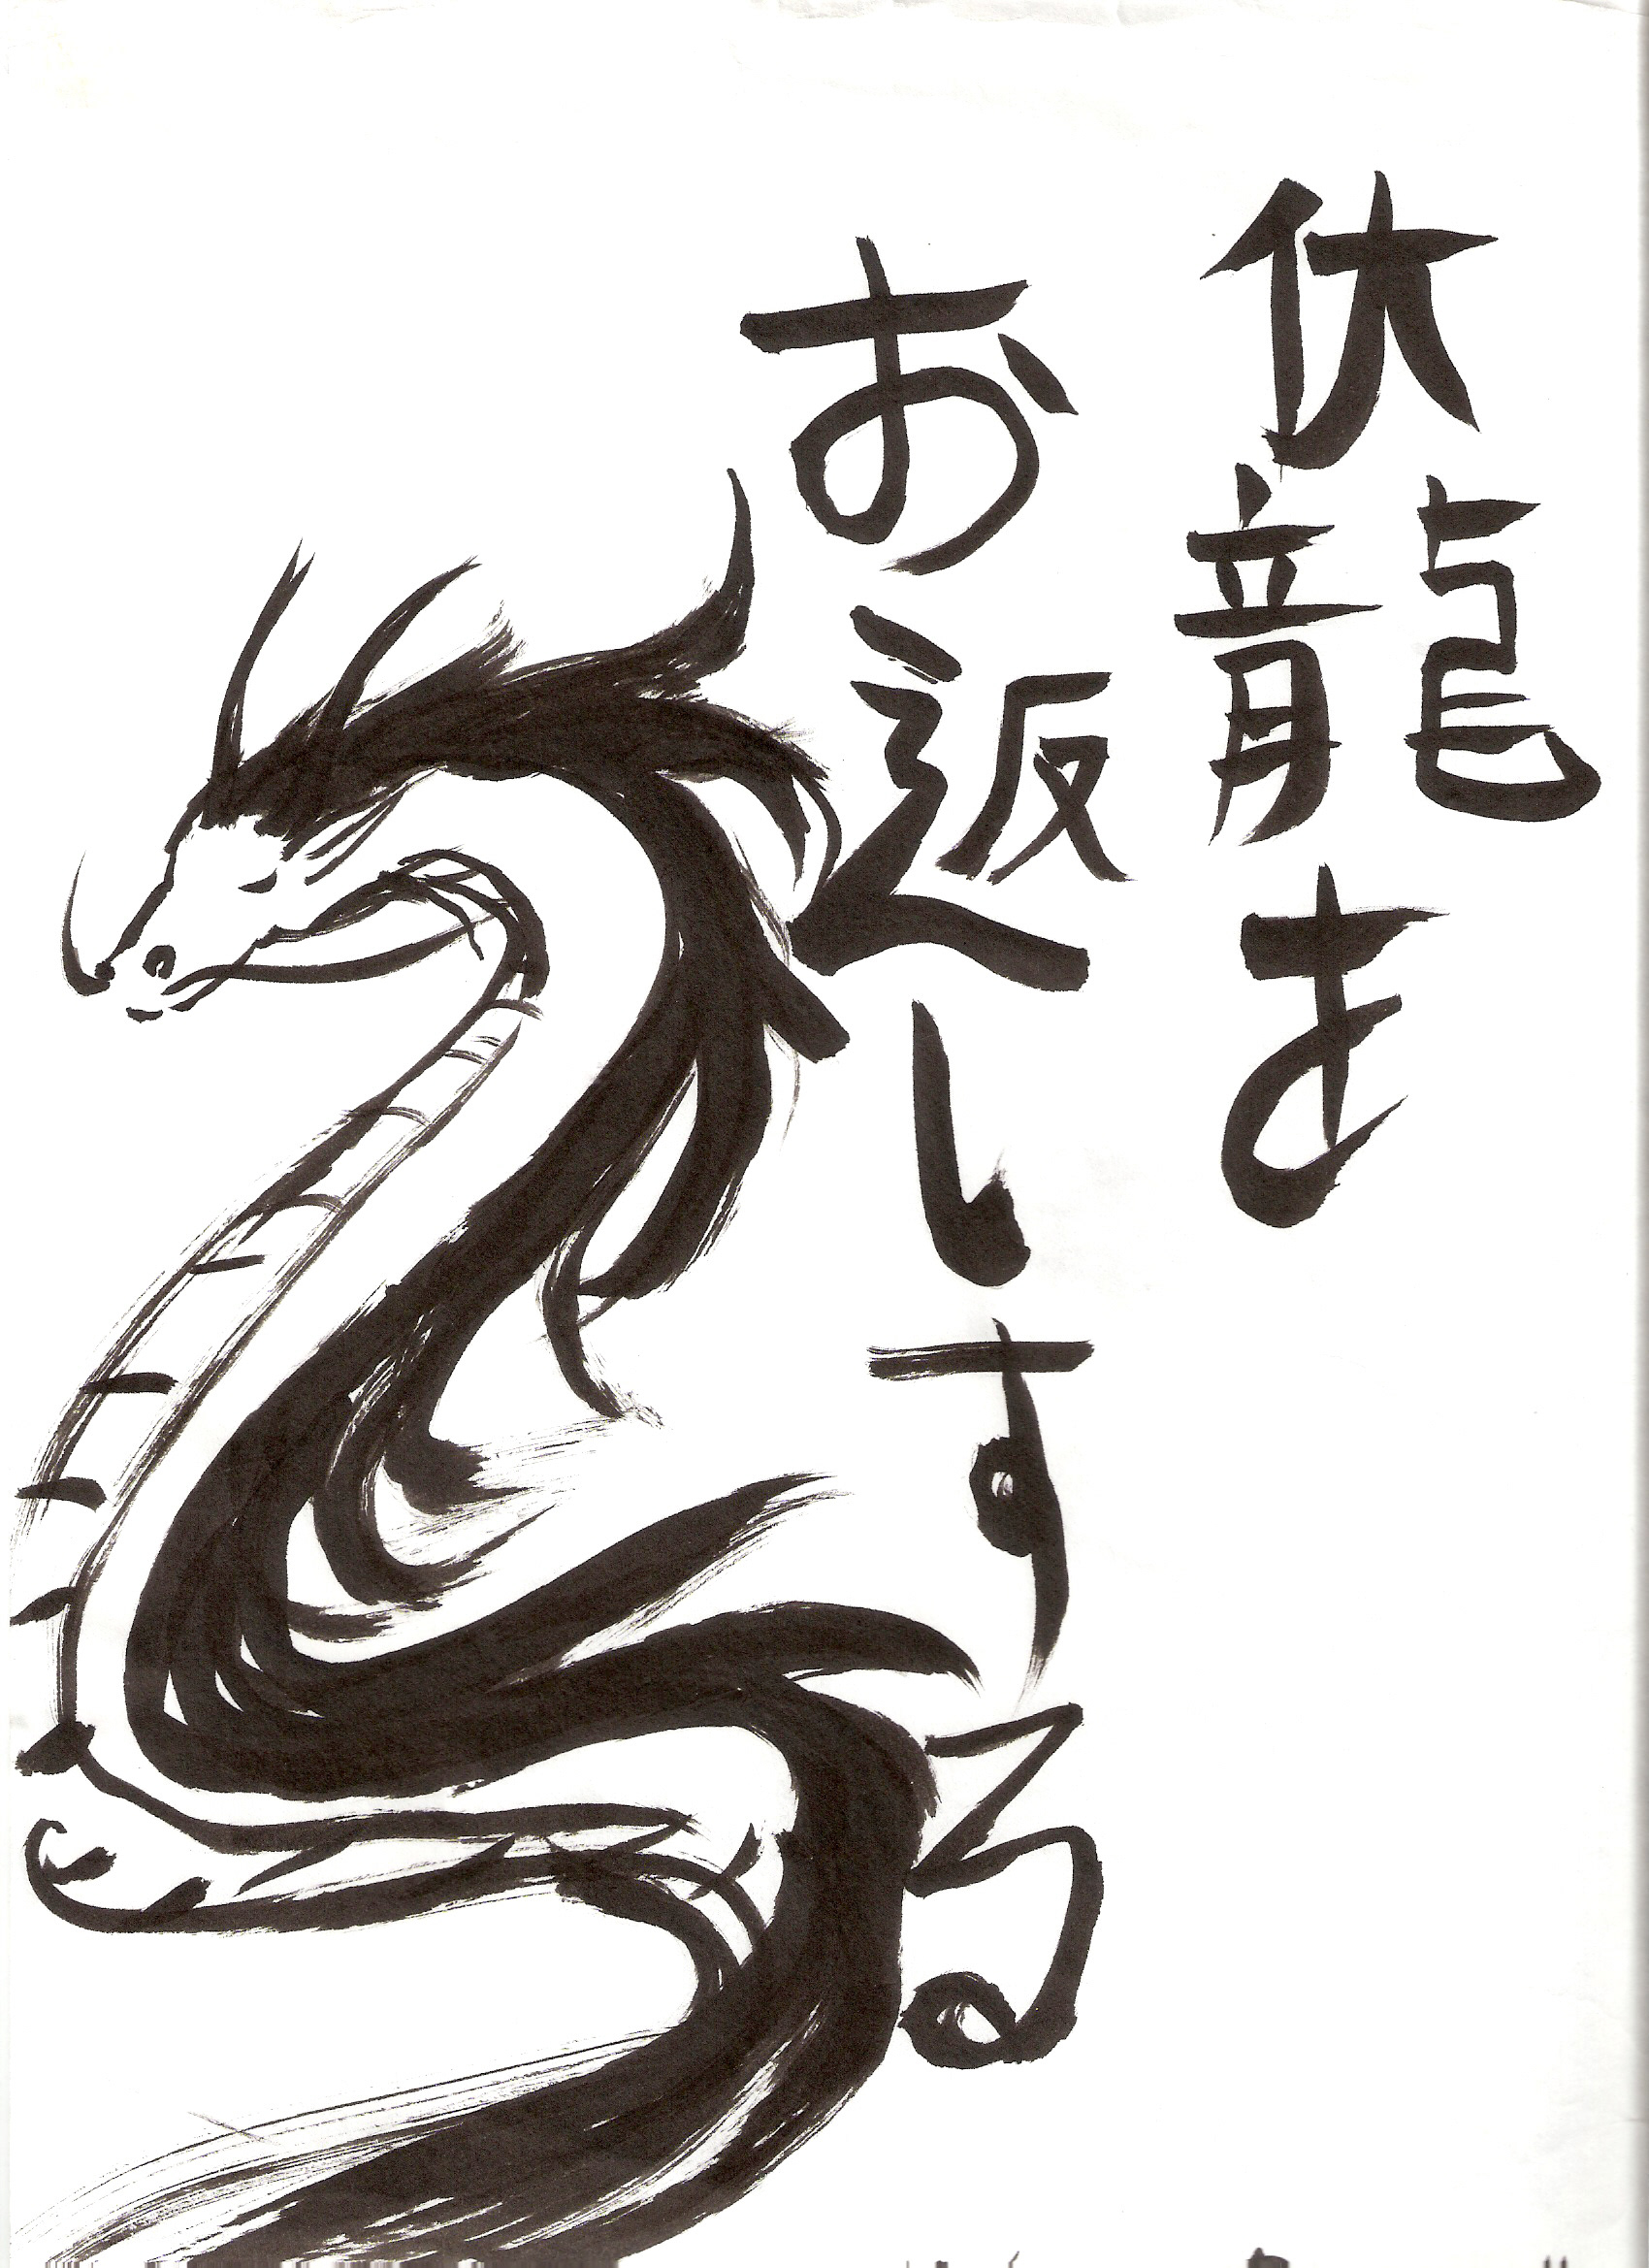 伏龍を
お返しする